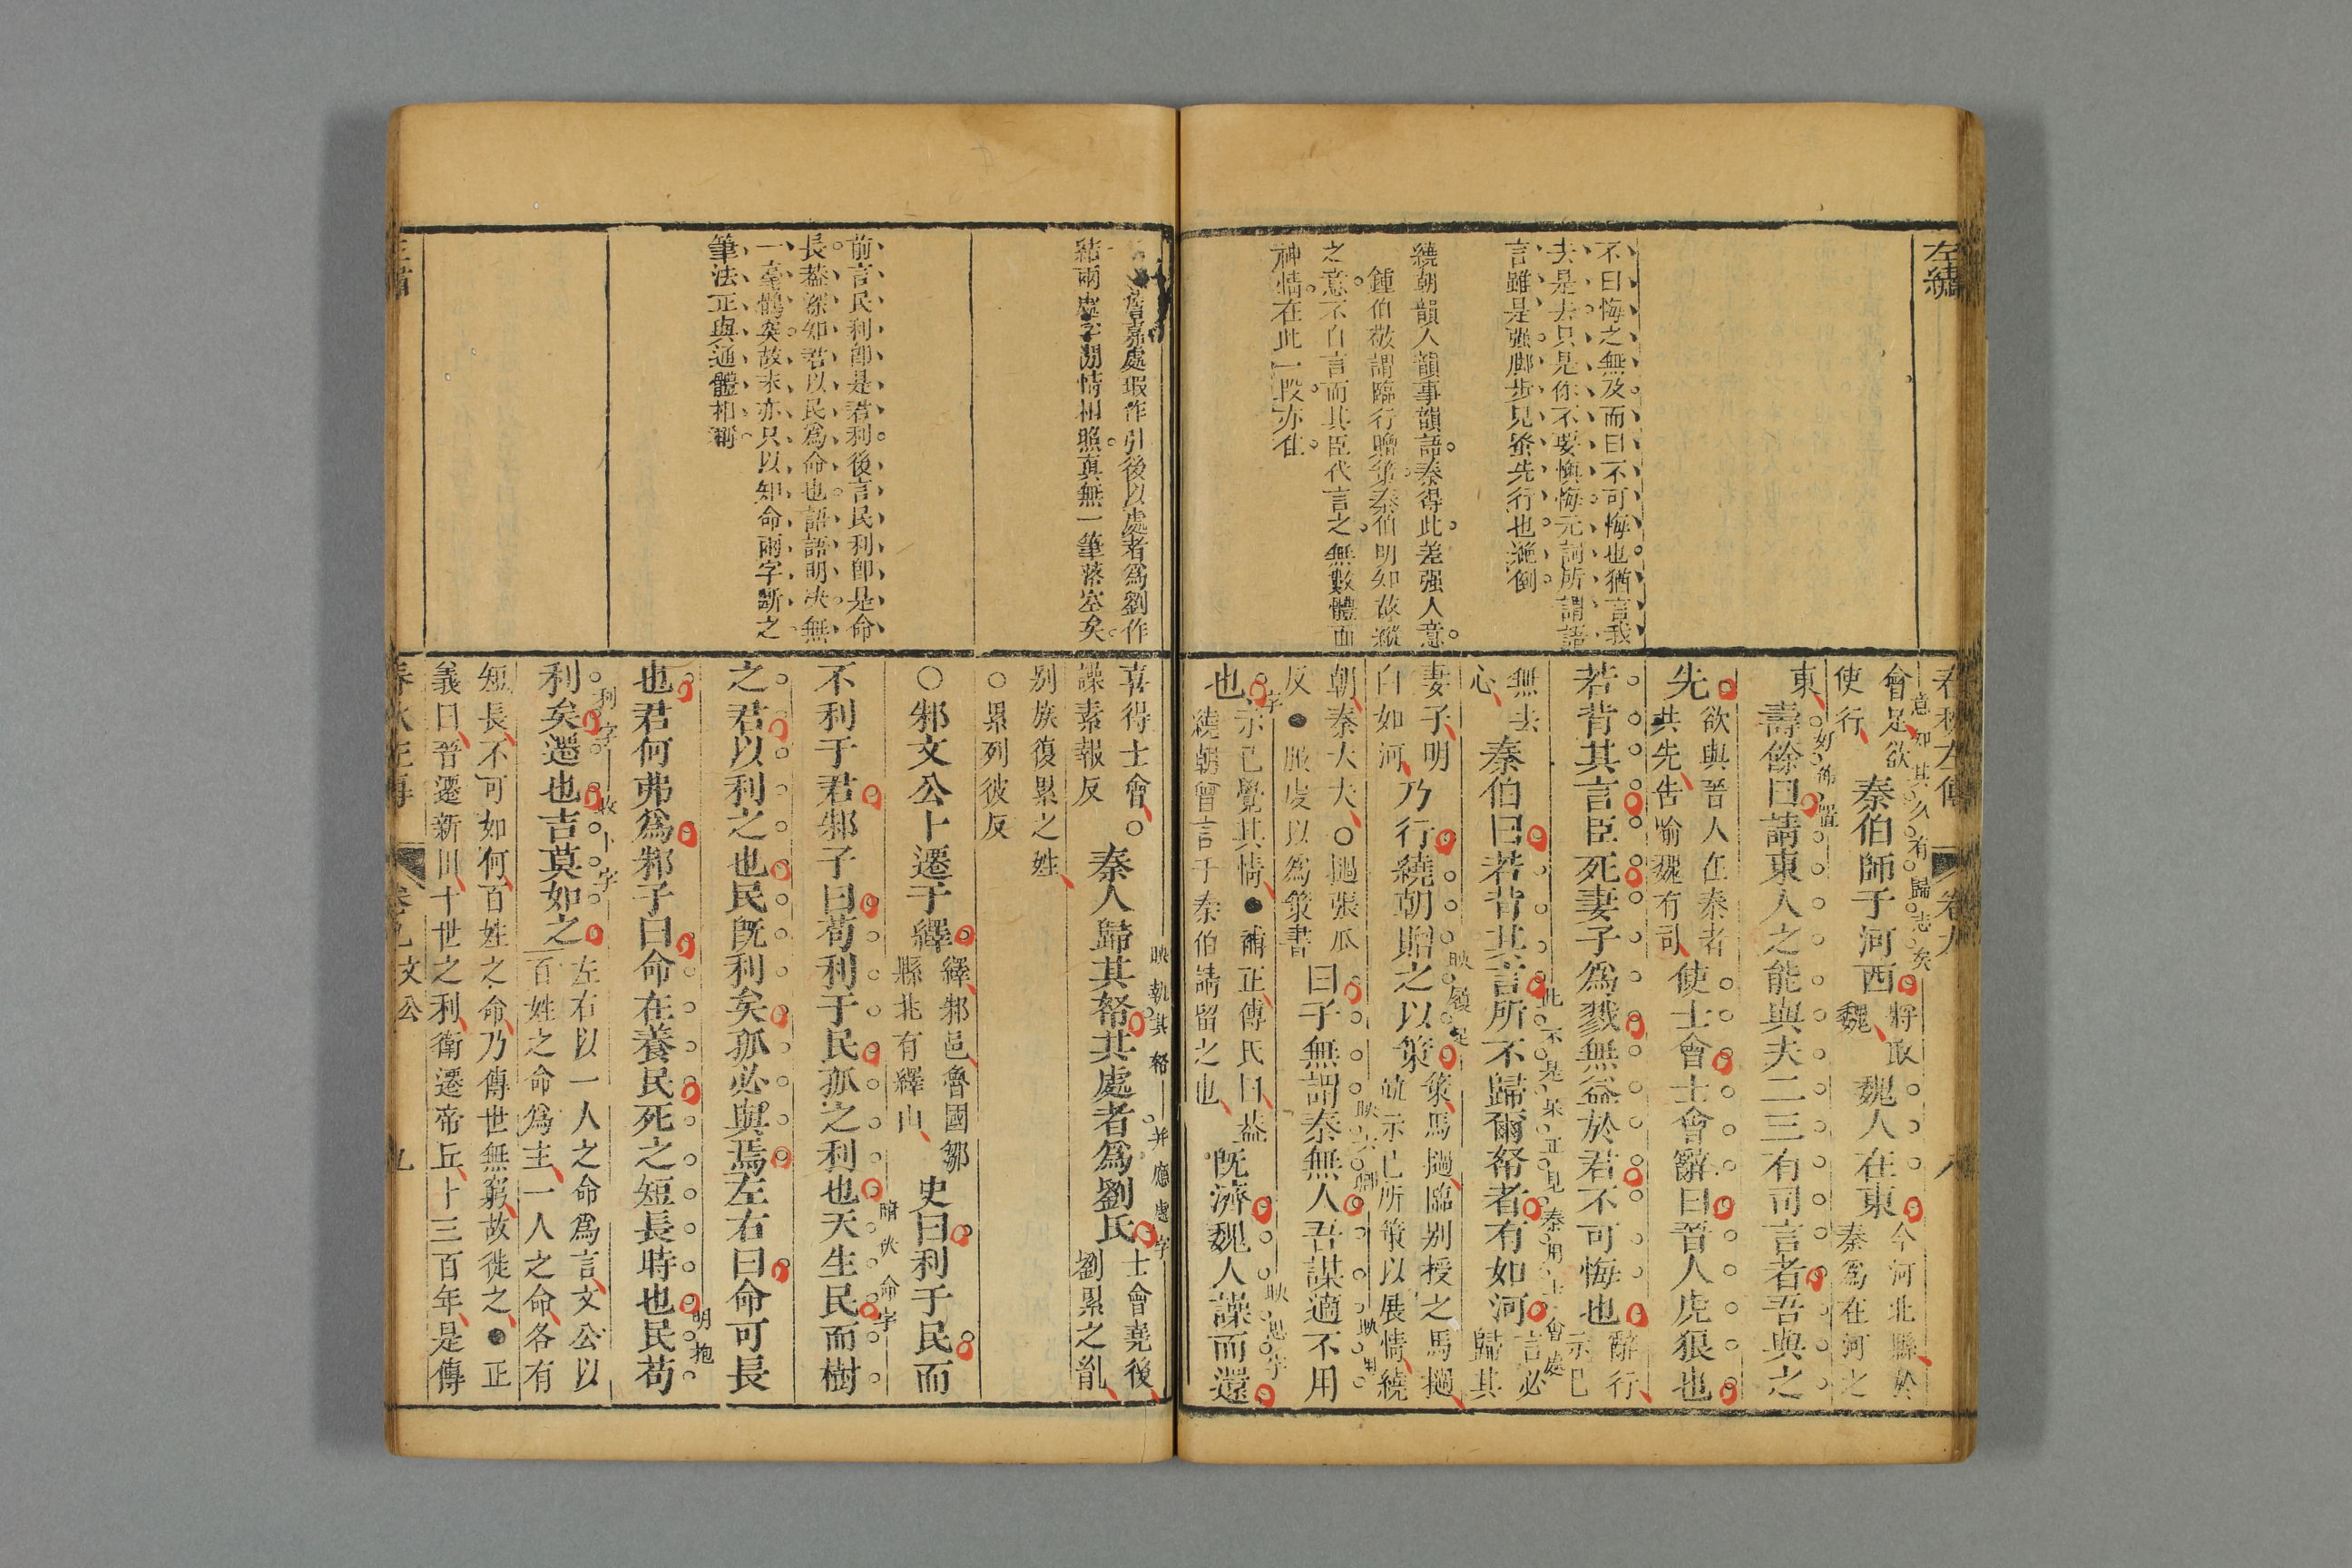 左繡
不曰悔之無及而曰不可悔也猶言我
去是去只是你不要懊悔元詞所謂語
言雖是强脚步兒發先行也絶倒
繞朝韻人韻事韻語秦得此差强人意
鍾伯敬謂臨行贈策秦伯明知故縱
之意不自言而其臣代言之無數體面
神情在此一段亦佳
春秋左傳 卷九 八
會足欲
使行
意如其久有歸志矣
秦伯師于河西
將取
魏
魏人在東
今河北縣於
秦爲在河之
東
壽餘曰請東人之能與夫二三有司言者吾與之
好佈置
先
欲與晉人在秦者
共先告喻魏有司
使士會士會辭曰晉人虎狼也
若背其言臣死妻子爲戮無益於君不可悔也
辭行
示己
無去
心
秦伯曰若背其言所不歸爾帑者有如河
言必
歸其
此不是呆正見秦用士會處
妻子明
白如河
乃行繞朝贈之以策
策馬檛臨别授之馬檛
竝示己所策以展情繞
映履足
朝秦大夫〇檛張瓜
反●服虔以爲策書
曰子無謂秦無人吾謀適不用
映六卿
映用
字
也
示己覺其情●補正傳氏曰葢
繞朝曾言于秦伯請留之也
既濟魏人譟而還
映思字
詹嘉處瑕作引後以處者爲劉作
結兩處字閒情相照真無一筆落空矣
前言民利即是君利後言民利即是命
長葢深知君以民爲命也語語明決無
一毫鶻突故末亦只以知命兩字斷之
筆法正與通體相稱
喜得士會〇
譟素報反
秦人歸其帑其處者爲劉氏
映執其帑
并應處字
士會堯後
劉累之亂
别族復累之姓
〇累列彼反
〇邾文公卜遷于繹
繹邾邑魯國鄒
縣北有繹山
史曰利于民而
不利于君邾子曰苟利于民孤之利也天生民而樹
暗伏命字
之君以利之也民既利矣孤必與焉左右曰命可長
也君何弗爲邾子曰命在養民死之短長時也民苟
明抱
利字
收卜字
利矣遷也吉莫如之
左右以一人之命爲言文公以
百姓之命爲主一人之命各有
短長不可如何百姓之命乃傳世無窮故徙之●正
義曰晉遷新田十世之利衛遷帝丘十三百年是傳
春秋左傳 卷九文公 九